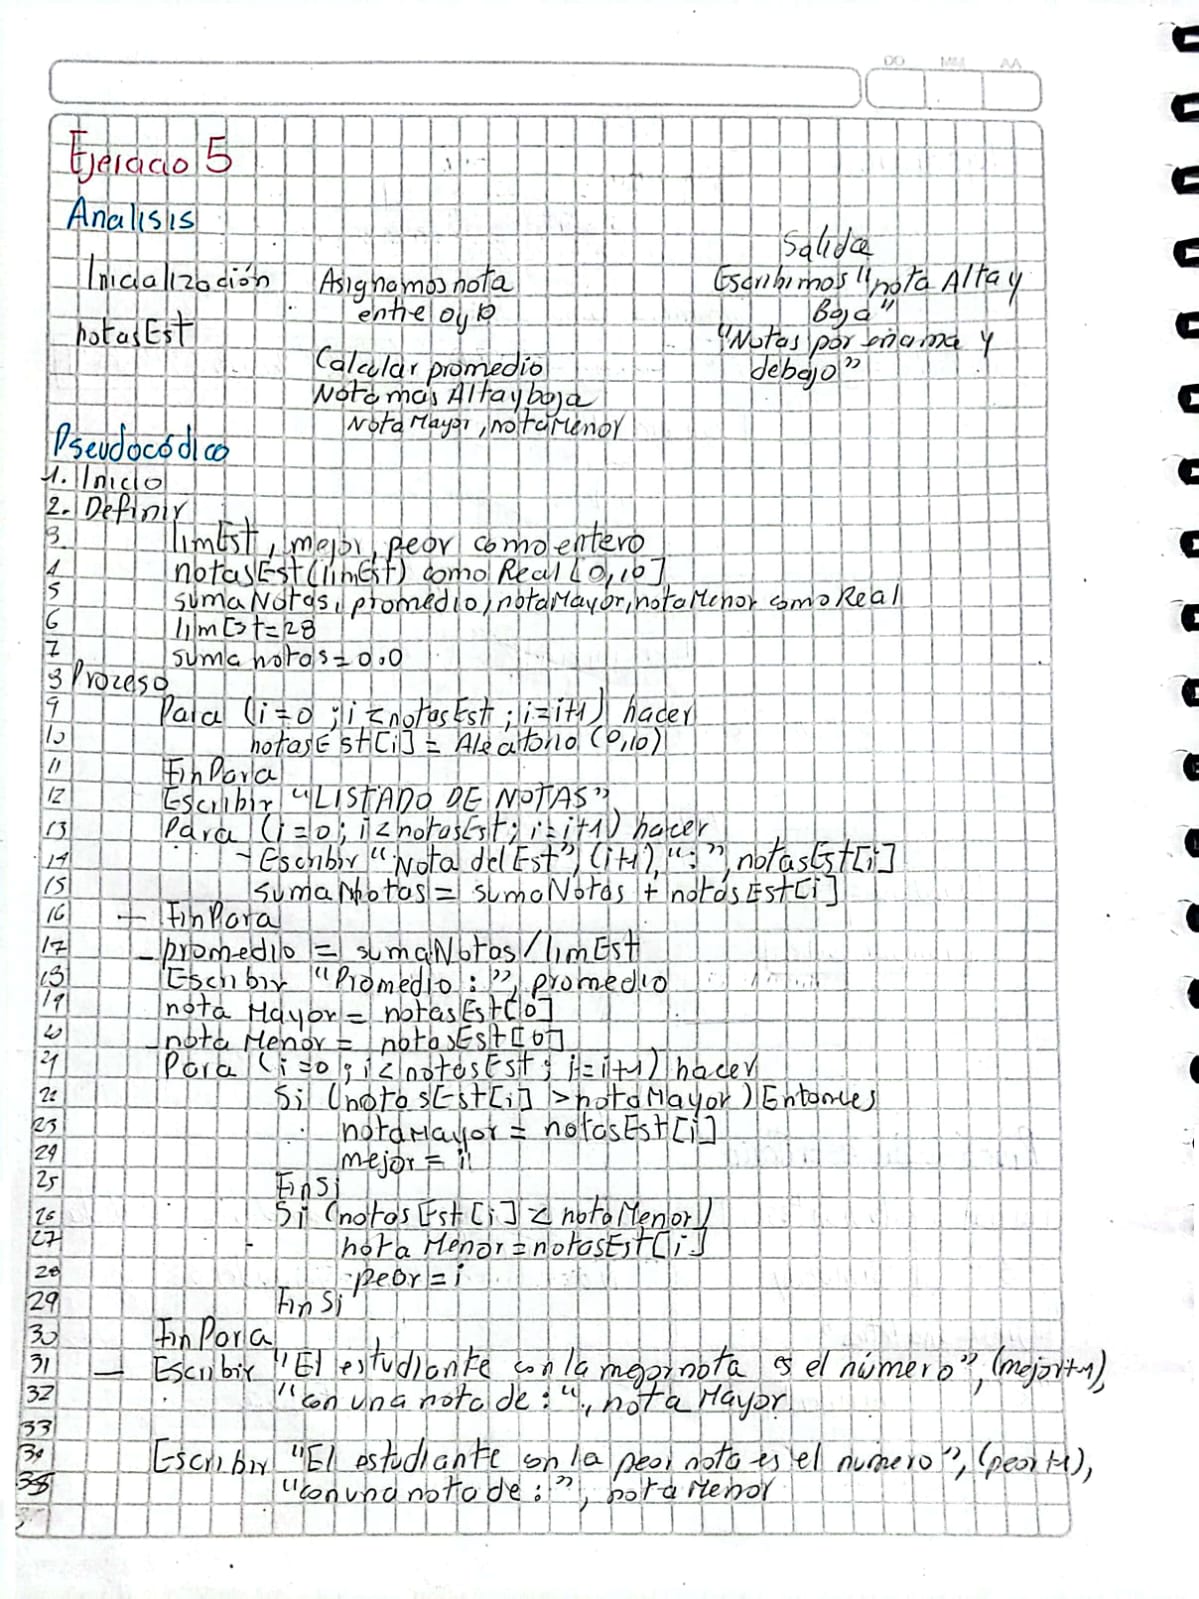 DD MM AA
Ejercicio 5
Analisis
Salida
Inicialización Asignamos nota Escribimos "nota Alta y
entre 0 y 10 Baja"
notasEst "Notas por encima y
Calcular promedio debajo"
Nota mas Alta y baja
Nota Mayor, nota Menor
Pseudocódico
1. Inicio
2. Definir
3 limEst, mejor, peor como entero
4 notasEst(limEst) como Real [0,10]
5 sumaNotas, promedio, notaMayor, notaMenor como Real
6 limEst=28
7 suma notas=0.0
8 Proceso
9 Para (i=0 ; i<notasEst ; i=i+1) hacer
10 notasEst[i] = Aleatorio (0,10)
11 FinPara
12 Escribir "LISTADO DE NOTAS"
13 Para (i=0; i<notasEst; i=i+1) hacer
14 - Escribir "Nota del Est", (i+1), ":", notasEst[i]
15 sumaNotas = sumaNotas + notasEst[i]
16 - FinPara
17 - promedio = sumaNotas/limEst
18 Escribir "Promedio : ", promedio
19 nota Mayor = notasEst[0]
20 nota Menor = notasEst[0]
21 Para (i=0 ; i<notasEst ; i=i+1) hacer
22 Si (notasEst[i] >notaMayor) Entonces
23 notaMayor = notasEst[i]
24 mejor = i
25 FinSi
26 Si (notasEst[i] < notaMenor)
27 nota Menor = notasEst[i]
28 peor = i
29 Fin Si
30 Fin Para
31 — Escribir "El estudiante con la mejor nota es el número", (mejor+1),
32 "con una nota de : ", nota Mayor
33
34 Escribir "El estudiante con la peor nota es el numero", (peor+1),
35 "con una nota de : ", nota Menor